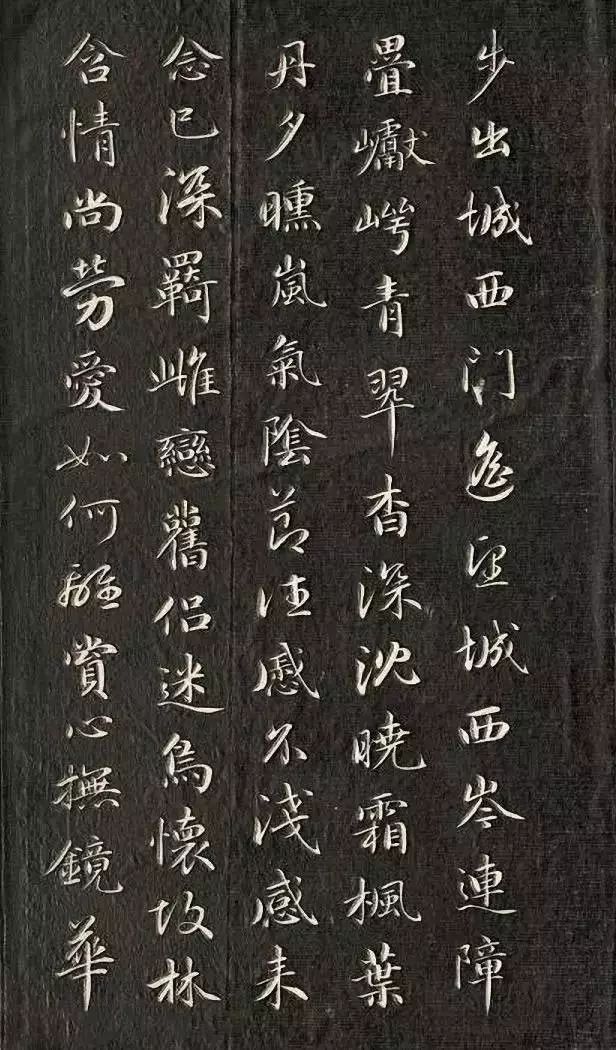 步出城西門遙望城西岑連障
疊巘崿青翠杳深沈曉霜楓葉
丹夕曛嵐氣陰節往慼不淺感来
念已深羇雌戀舊侣迷鳥懷故林
含情尚勞愛如何離賞心撫鏡華